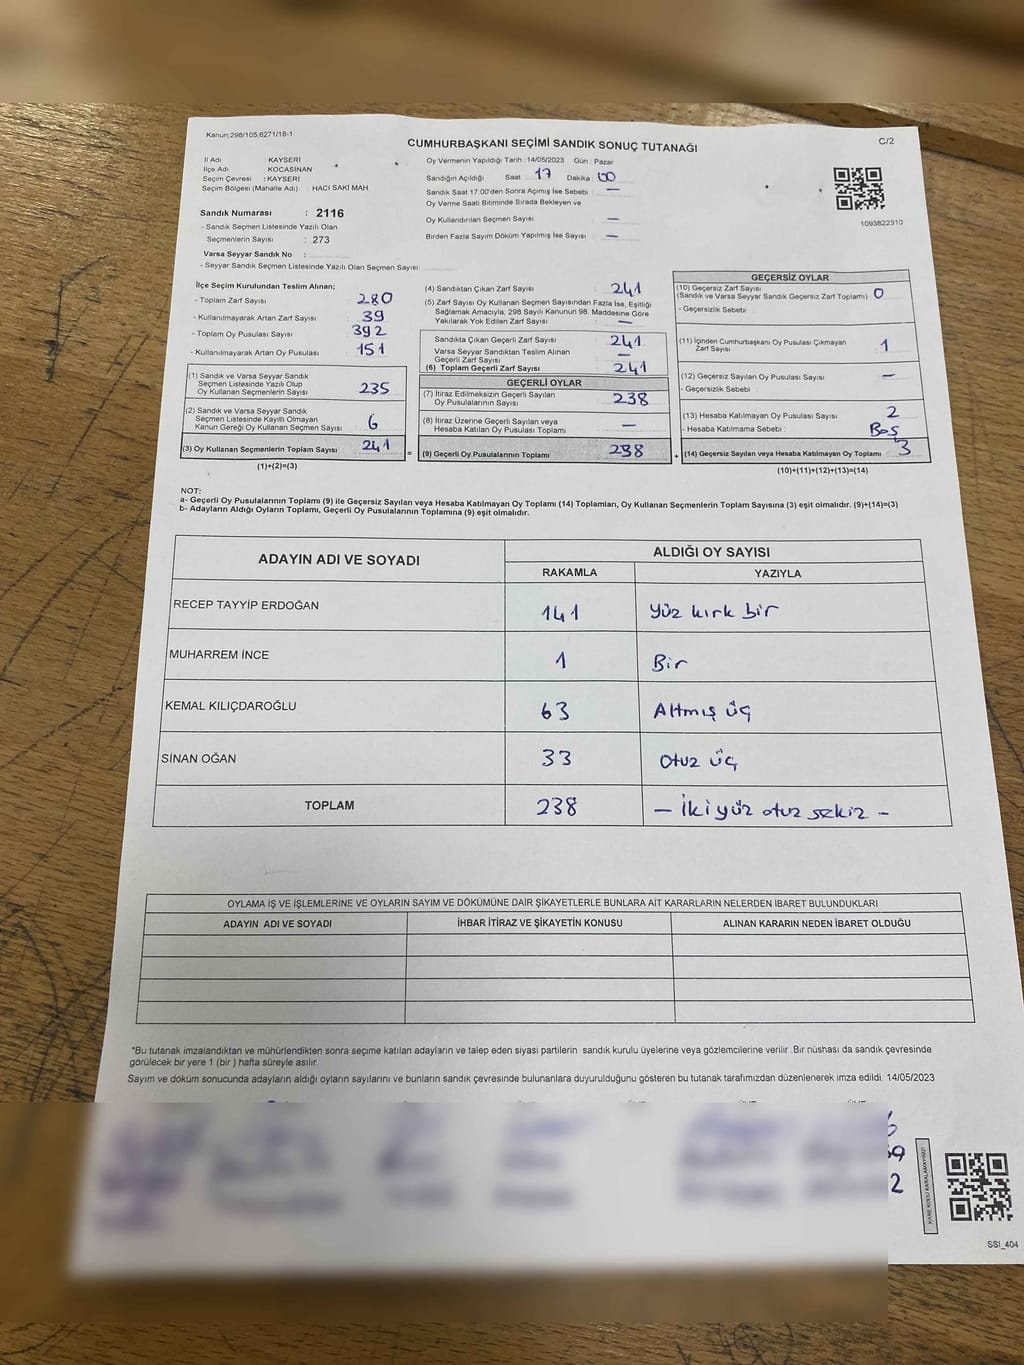 Kanun:298/105,6271/18-1
CUMHURBAŞKANI SEÇİMİ SANDIK SONUÇ TUTANAĞI
C/2
İl Adı : KAYSERİ
İlçe Adı : KOCASİNAN
Seçim Çevresi : KAYSERİ
Seçim Bölgesi (Mahalle Adı) : HACI SAKİ MAH
Sandık Numarası : 2116
- Sandık Seçmen Listesinde Yazılı Olan
Seçmenlerin Sayısı : 273
Varsa Seyyar Sandık No :
- Seyyar Sandık Seçmen Listesinde Yazılı Olan Seçmen Sayısı:
Oy Vermenin Yapıldığı Tarih :14/05/2023 Gün : Pazar
Sandığın Açıldığı Saat 17 Dakika 00
Sandık Saat 17:00'den Sonra Açımış İse Sebebi : —
Oy Verme Saati Bitiminde Sırada Bekleyen ve
Oy Kullandırılan Seçmen Sayısı : —
Birden Fazla Sayım Döküm Yapılmış İse Sayısı : —
1093822310
İlçe Seçim Kurulundan Teslim Alınan;
- Toplam Zarf Sayısı 280
- Kullanılmayarak Artan Zarf Sayısı : 39
- Toplam Oy Pusulası Sayısı 392
- Kullanılmayarak Artan Oy Pusulası : 151
(1) Sandık ve Varsa Seyyar Sandık
Seçmen Listesinde Yazılı Olup
Oy Kullanan Seçmenlerin Sayısı 235
(2) Sandık ve Varsa Seyyar Sandık
Seçmen Listesinde Kayıtlı Olmayan
Kanun Gereği Oy Kullanan Seçmen Sayısı 6
(3) Oy Kullanan Seçmenlerin Toplam Sayısı 241
(1)+(2)=(3)
(4) Sandıktan Çıkan Zarf Sayısı : 241
(5) Zarf Sayısı Oy Kullanan Seçmen Sayısından Fazla İse, Eşitliği
Sağlamak Amacıyla; 298 Sayılı Kanunun 98. Maddesine Göre
Yakılarak Yok Edilen Zarf Sayısı : —
Sandıkta Çıkan Geçerli Zarf Sayısı : 241
Varsa Seyyar Sandıktan Teslim Alınan
Geçerli Zarf Sayısı : —
(6) Toplam Geçerli Zarf Sayısı : 241
GEÇERLİ OYLAR
(7) İtiraz Edilmeksizin Geçerli Sayılan
Oy Pusulalarının Sayısı : 238
(8) İtiraz Üzerine Geçerli Sayılan veya
Hesaba Katılan Oy Pusulası Toplamı : —
= (9) Geçerli Oy Pusulalarının Toplamı 238
GEÇERSİZ OYLAR
(10) Geçersiz Zarf Sayısı
(Sandık ve Varsa Seyyar Sandık Geçersiz Zarf Toplamı) : 0
- Geçersizlik Sebebi
(11) İçinden Cumhurbaşkanı Oy Pusulası Çıkmayan
Zarf Sayısı : 1
(12) Geçersiz Sayılan Oy Pusulası Sayısı : —
- Geçersizlik Sebebi
(13) Hesaba Katılmayan Oy Pusulası Sayısı : 2
- Hesaba Katılmama Sebebi : Boş
+ (14) Geçersiz Sayılan veya Hesaba Katılmayan Oy Toplamı 3
(10)+(11)+(12)+(13)=(14)
NOT:
a- Geçerli Oy Pusulalarının Toplamı (9) ile Geçersiz Sayılan veya Hesaba Katılmayan Oy Toplamı (14) Toplamları, Oy Kullanan Seçmenlerin Toplam Sayısına (3) eşit olmalıdır. (9)+(14)=(3)
b- Adayların Aldığı Oyların Toplamı, Geçerli Oy Pusulalarının Toplamına (9) eşit olmalıdır.
ADAYIN ADI VE SOYADI
ALDIĞI OY SAYISI
RAKAMLA YAZIYLA
RECEP TAYYİP ERDOĞAN 141 Yüz kırk bir
MUHARREM İNCE 1 Bir
KEMAL KILIÇDAROĞLU 63 Altmış üç
SİNAN OĞAN 33 Otuz üç
TOPLAM 238 – İki yüz otuz sekiz –
OYLAMA İŞ VE İŞLEMLERİNE VE OYLARIN SAYIM VE DÖKÜMÜNE DAİR ŞİKAYETLERLE BUNLARA AİT KARARLARIN NELERDEN İBARET BULUNDUKLARI
ADAYIN ADI VE SOYADI İHBAR İTİRAZ VE ŞİKAYETİN KONUSU ALINAN KARARIN NEDEN İBARET OLDUĞU
*Bu tutanak imzalandıktan ve mühürlendikten sonra seçime katılan adayların ve talep eden siyasi partilerin sandık kurulu üyelerine veya gözlemcilerine verilir .Bir nüshası da sandık çevresinde
görülecek bir yere 1 (bir ) hafta süreyle asılır.
Sayım ve döküm sonucunda adayların aldığı oyların sayılarını ve bunların sandık çevresinde bulunanlara duyurulduğunu gösteren bu tutanak tarafımızdan düzenlenerek imza edildi. 14/05/2023
KARE KODU KARALAMAYINIZ!
SSI_404